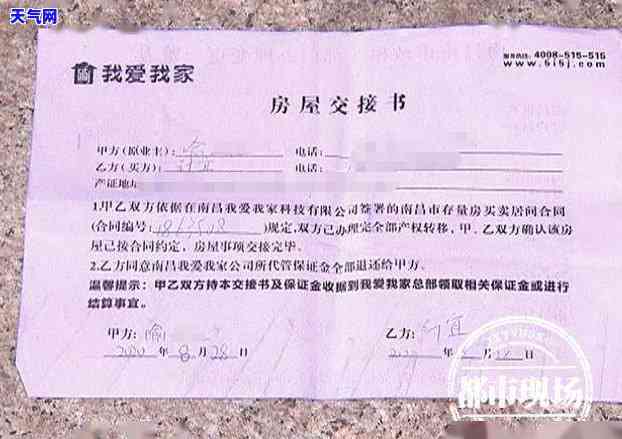 天气网
我爱我家
服务热线: 4008-515-515
www.5i5j.com
房屋交接书
甲方(原业主): 喻 电话:
乙方(买方): 电话:
产证地址
1.甲乙双方依据在南昌我爱我家科技有限公司签署的南昌市存量房买卖居间合同
(合同编号: )规定, 双方已办理完全部产权转移, 甲、乙双方确认该房
屋已按合同约定, 房屋事项交接完毕。
2.乙方同意南昌我爱我家公司所代管保证金全部退还给甲方。
温馨提示: 甲乙双方持本交接书及保证金收据到我爱我家总部领取相关保证金或进行
结算事宜。
甲方: 喻 乙方: 宜
2020 年 8 月 28 日 年 月 日
都市现场